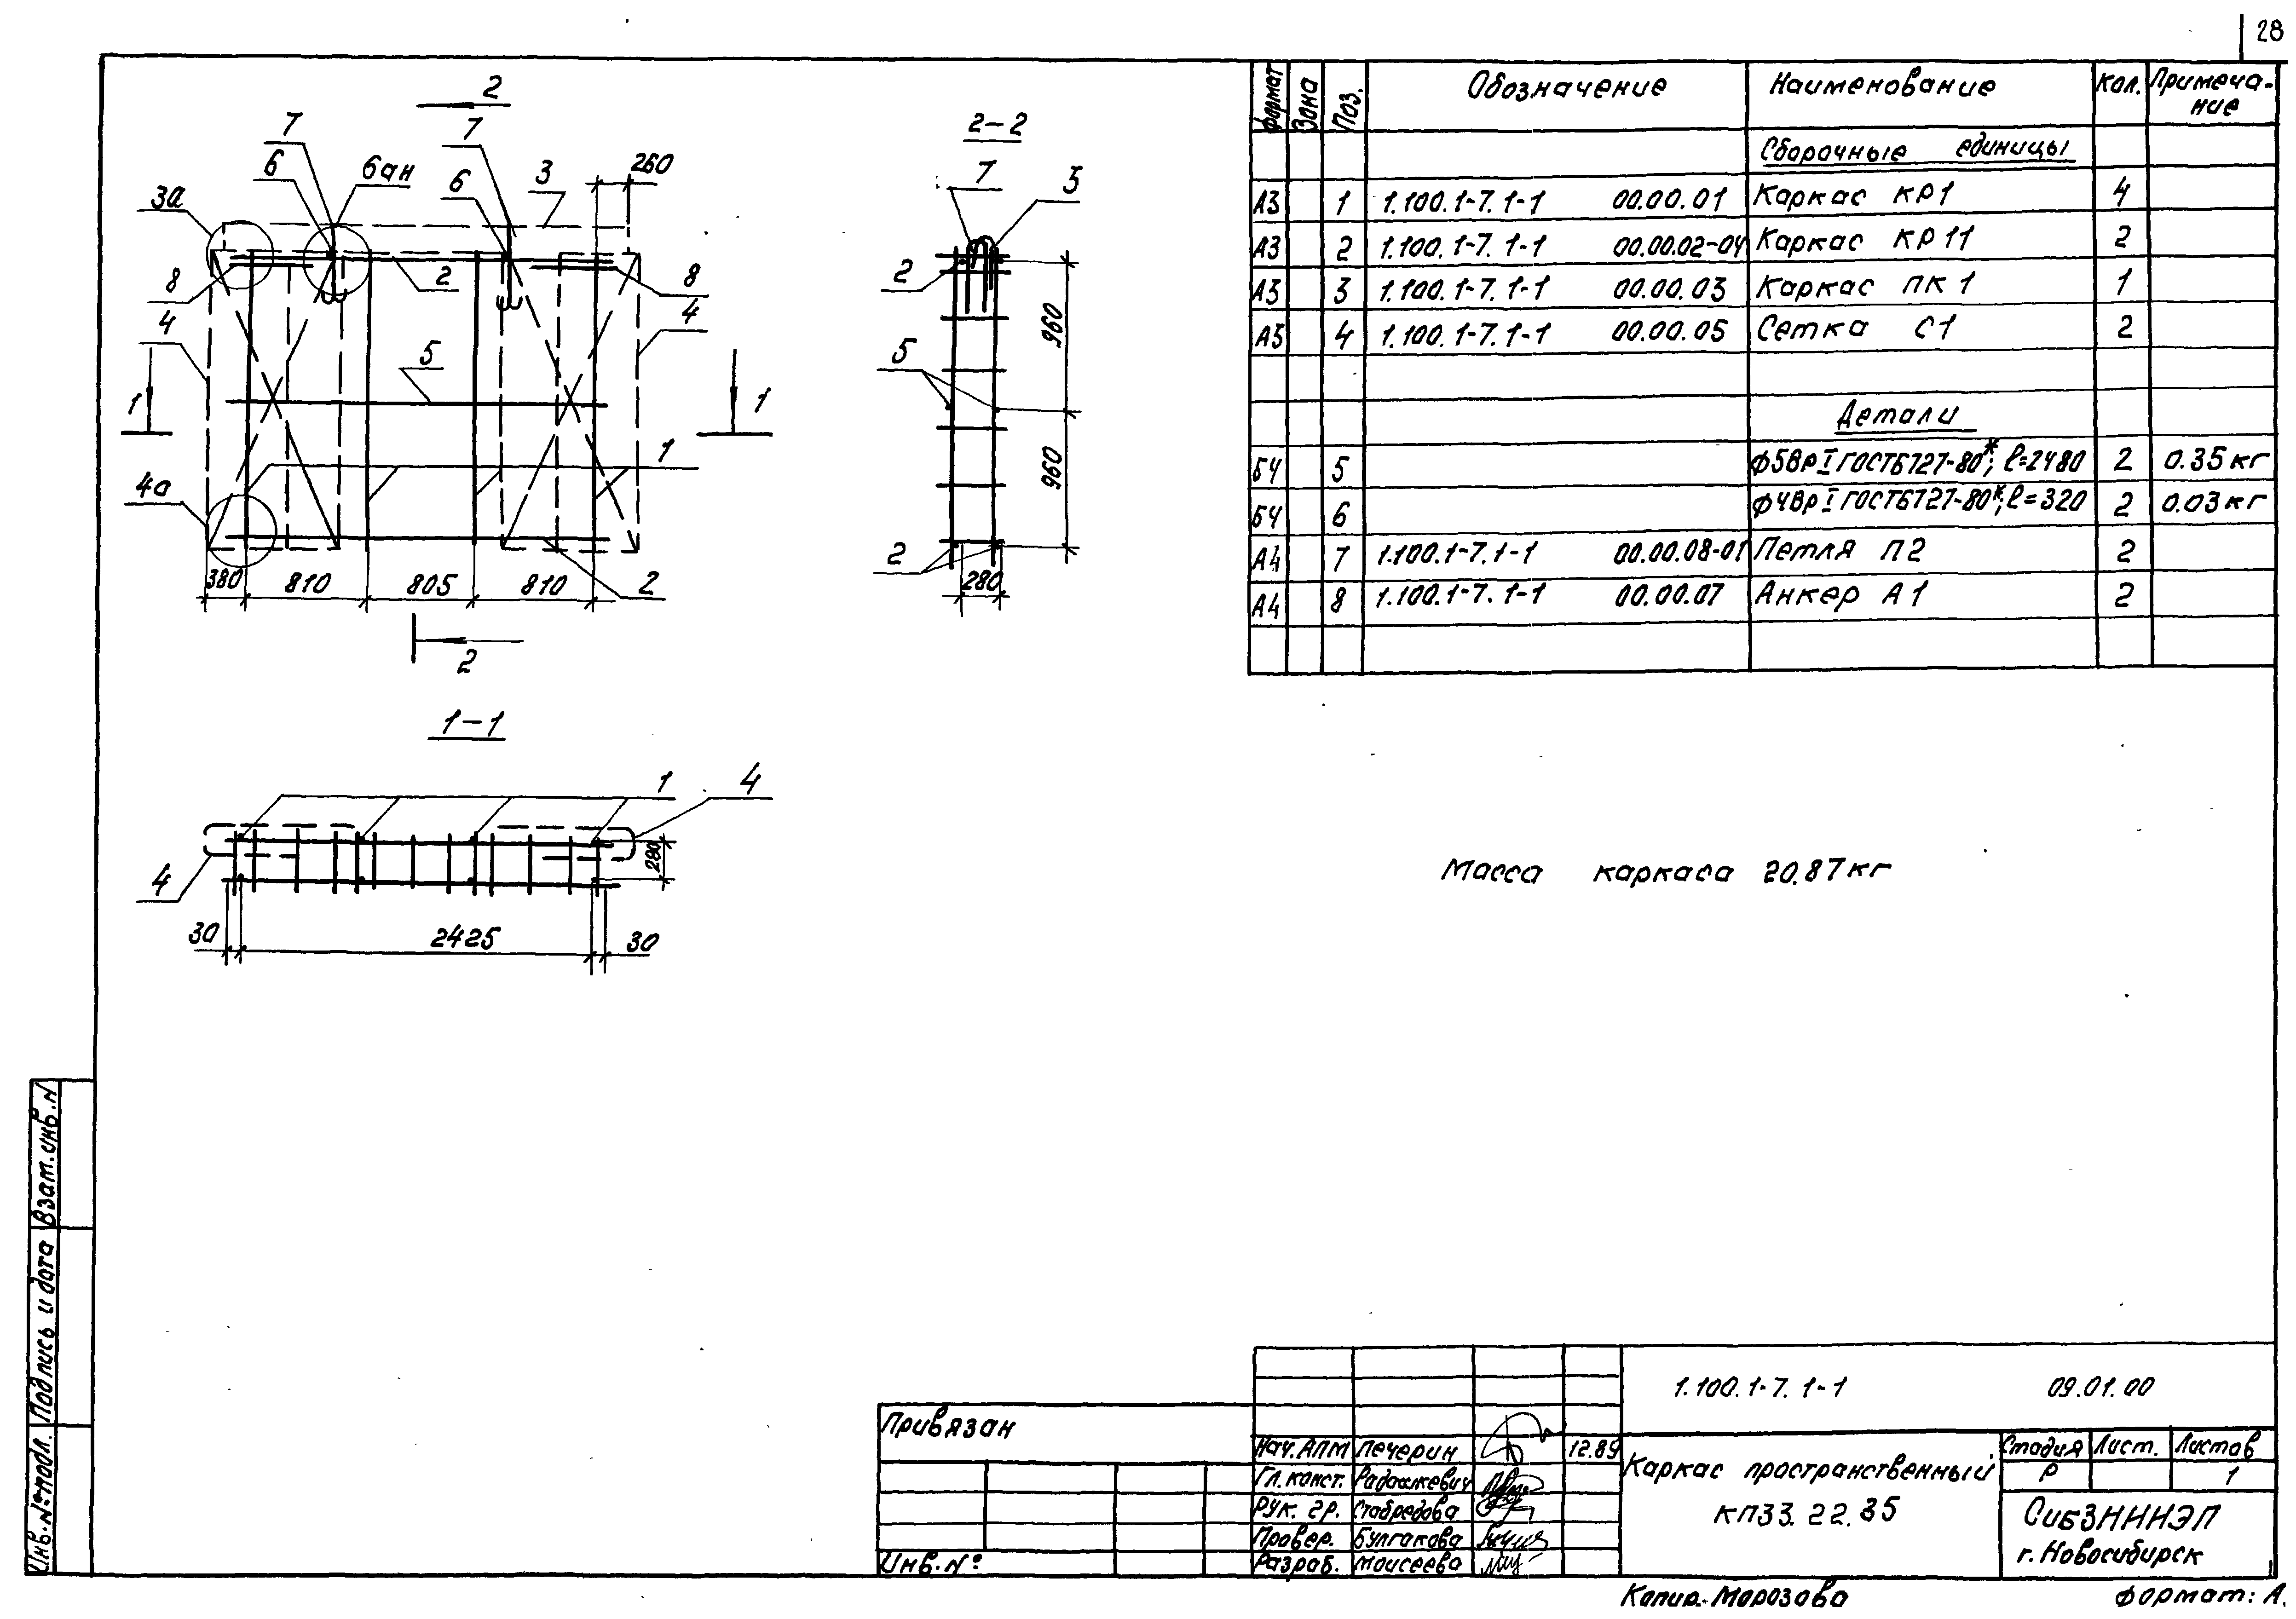 28
2
7
7
6
6ан
6
3
260
3а
8
2
8
4
4
5
1
1
1
4а
380
810
805
810
2
2
2-2
7
5
2
960
5
960
2
280
1-1
1
4
280
4
30
2425
30
Формат Зона Поз. Обозначение Наименование Кол. Примеча-
ние
Сборочные единицы
А3 1 1.100.1-7.1-1 00.00.01 Каркас КР1 4
А3 2 1.100.1-7.1-1 00.00.02-04 Каркас КР11 2
А3 3 1.100.1-7.1-1 00.00.03 Каркас ПК1 1
А3 4 1.100.1-7.1-1 00.00.05 Сетка С1 2
Детали
БЧ 5 ф5ВрI ГОСТ6727-80*; ℓ=2480 2 0.35кг
БЧ 6 ф4ВрI ГОСТ6727-80*; ℓ=320 2 0.03кг
А4 7 1.100.1-7.1-1 00.00.08-01 Петля П2 2
А4 8 1.100.1-7.1-1 00.00.07 Анкер А1 2
Масса каркаса 20.87кг
Взам.инв.N
Подпись и дата
Инв.№подл.
Привязан
Инв.№
1.100.1-7.1-1 09.01.00
Нач.АПМ Печерин 12.89
Гл.конст. Радашкевич
Рук. гр. Стабредова
Провер. Булгакова
Разраб. Моисеева
Каркас пространственный
КП33.22.35
Стадия Лист. Листов
Р 1
СибЗНИИЭП
г.Новосибирск
Копир.-Морозова
Формат: А